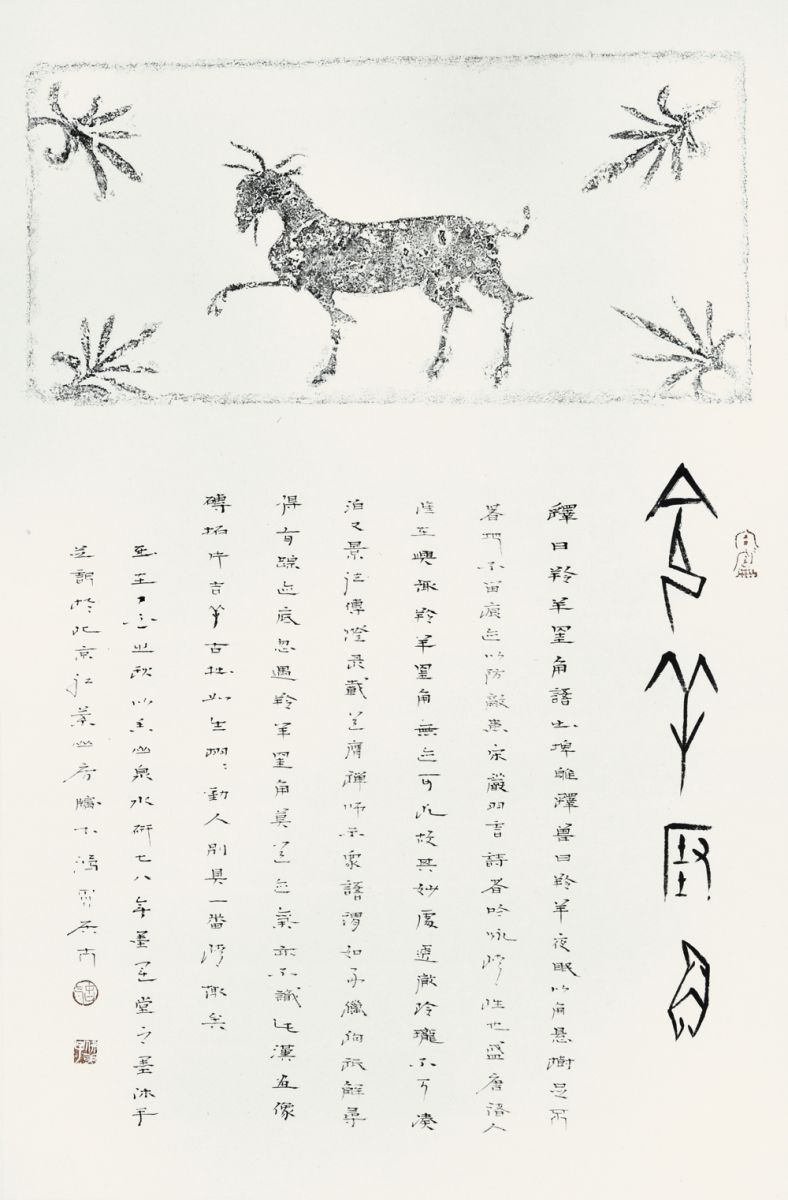 羊角
釋曰羚羊罣角語出埤雅釋獸曰羚羊夜眠以角懸樹足不
著地不留痕迹以防敵患宋嚴羽言詩者吟詠情性也盛唐諸人
惟在興趣羚羊罣角無迹可求故其妙處透徹玲瓏不可湊
泊又景德傳燈录載道膺禪師示衆語謂如好獵狗祇解尋
得有蹤迹底忽遇羚羊罣角莫道迹氣亦不識此漢畫像
磚拓片吉羊古拙如生栩〻動人別具一番情趣矣
之秋以山泉水研七八年墨堂之墨沐手
並記於北京紅葉山房牖下